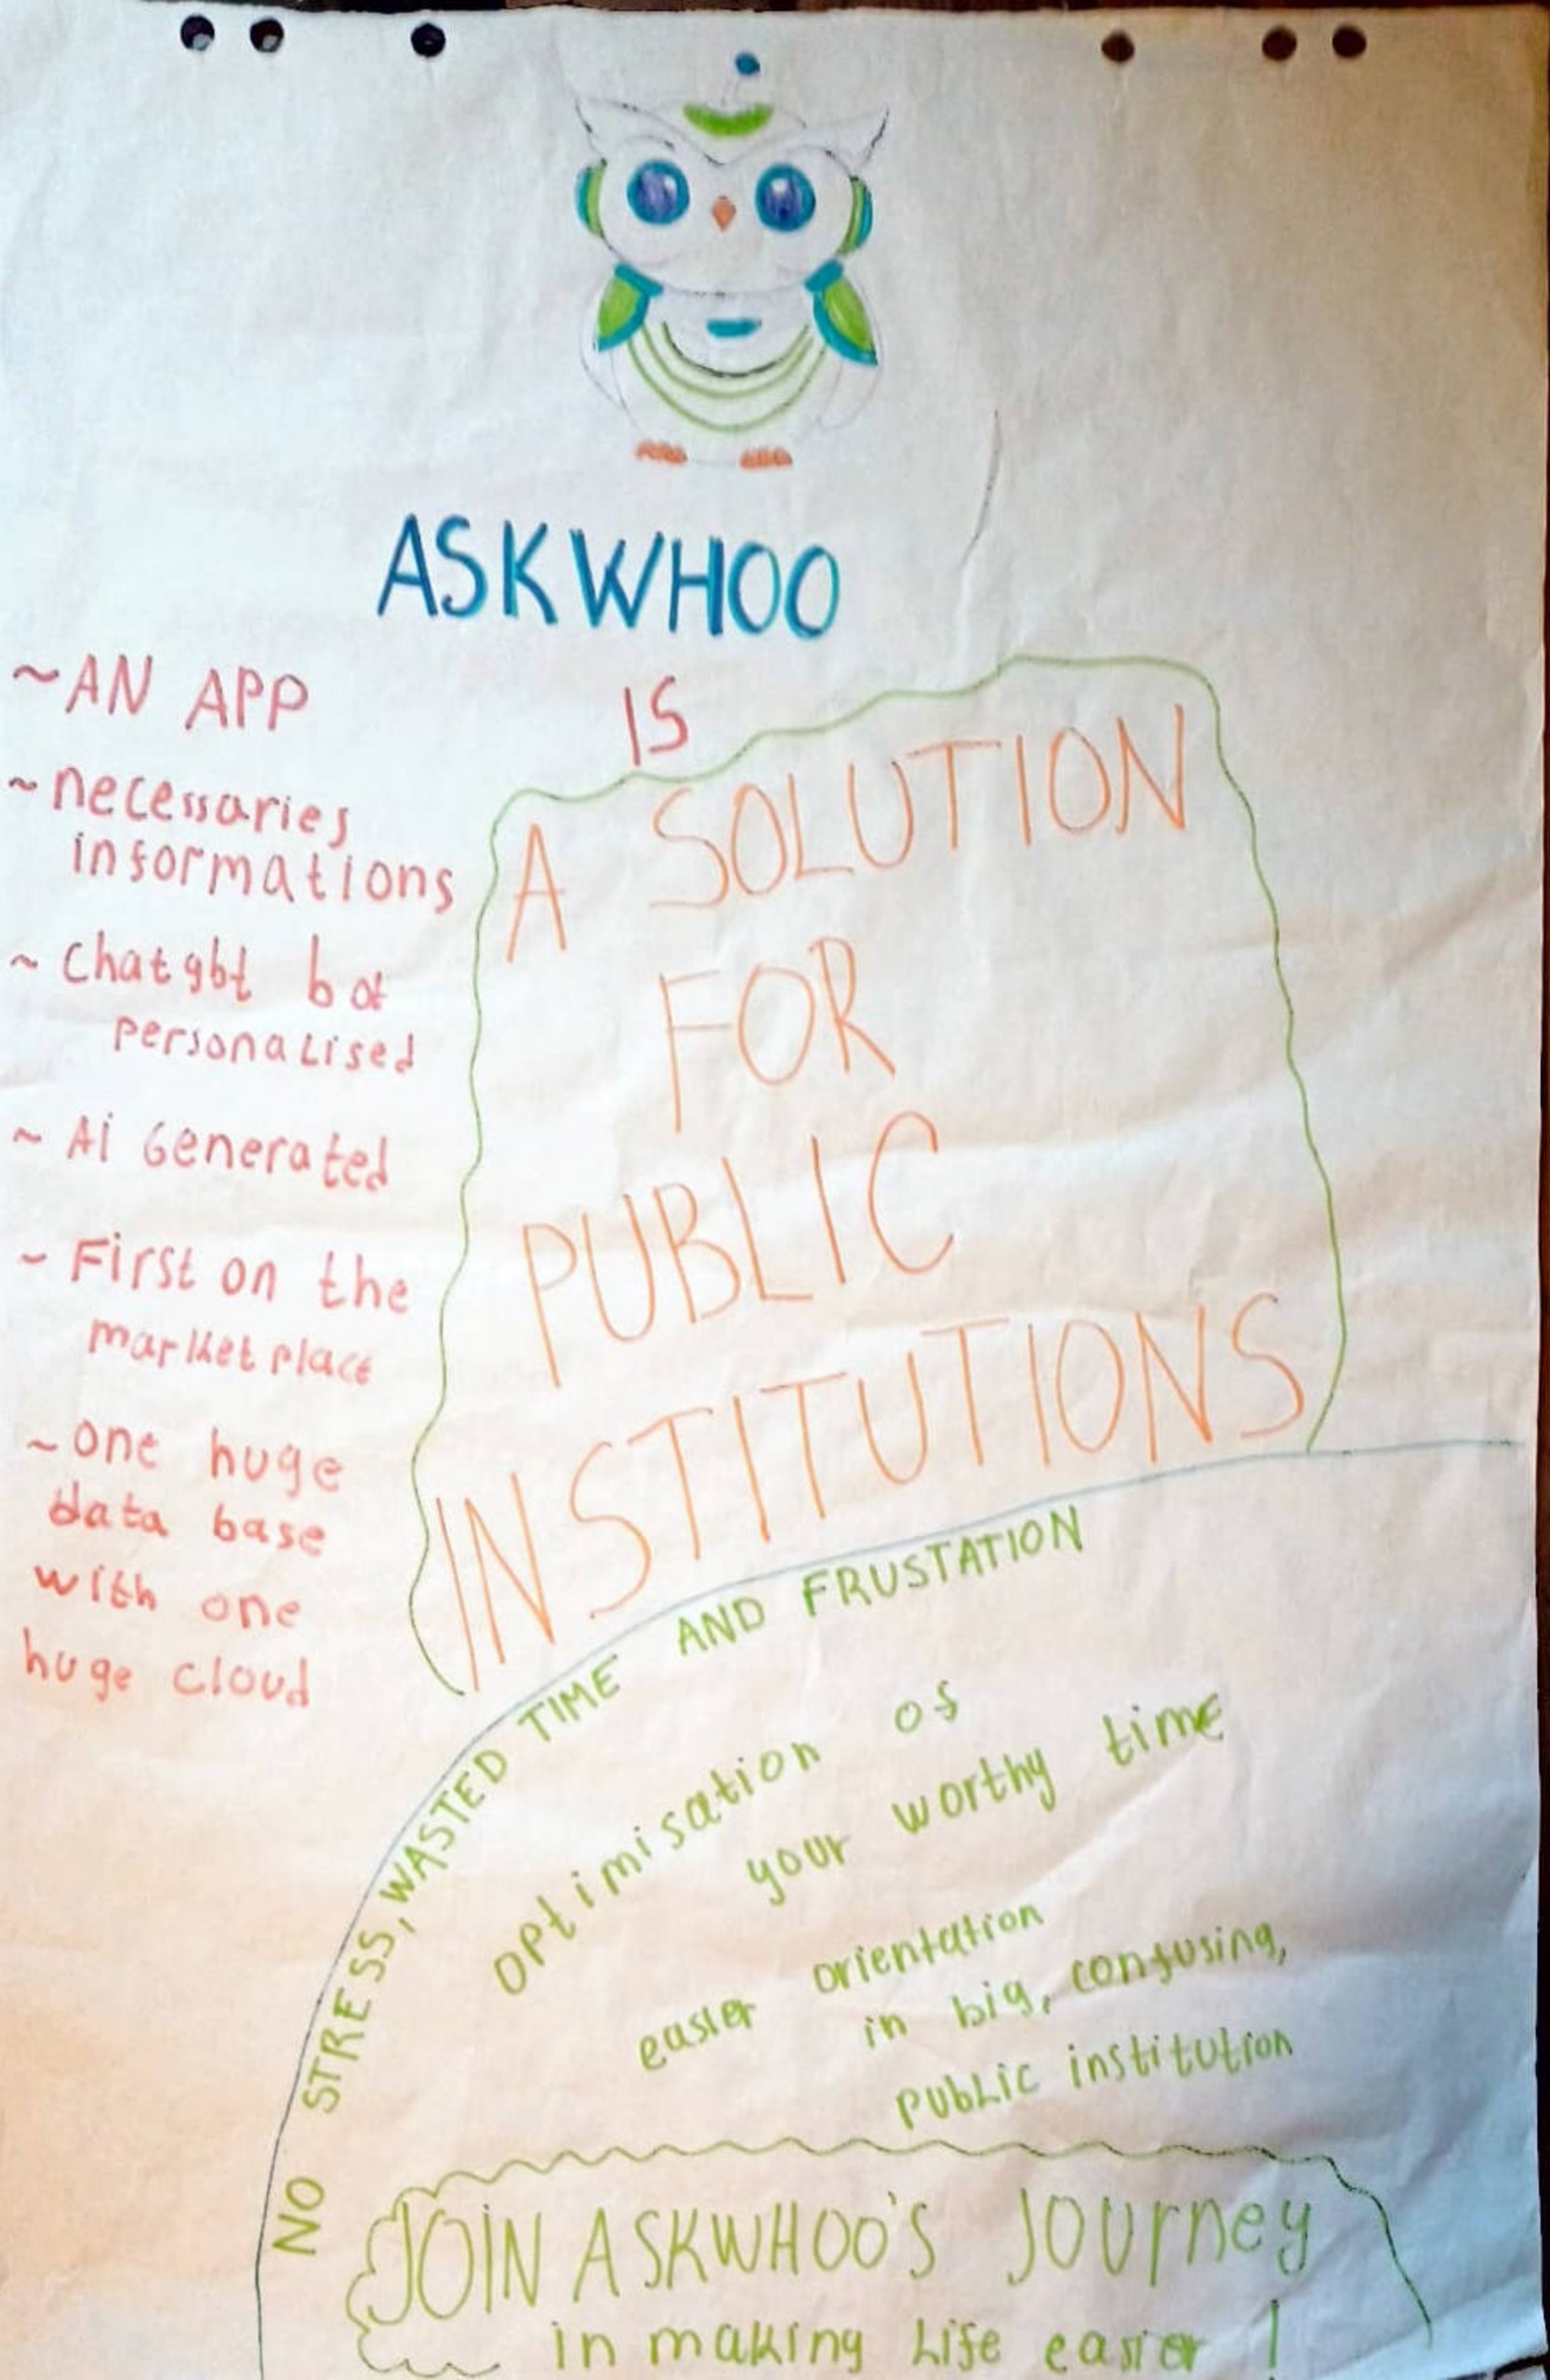 ASKWHOO
IS
~AN APP
~necessaries
informations
~ Chatgbt bot
personalised
~ Ai Generated
~ First on the
market place
~one huge
data base
with one
huge cloud
A SOLUTION
FOR
PUBLIC
INSTITUTIONS
NO STRESS, WASTED TIME AND FRUSTATION
optimisation of
your worthy time
easier orientation
in big, confusing,
public institution
JOIN ASKWHOO'S JOUrney
in making Life easier !